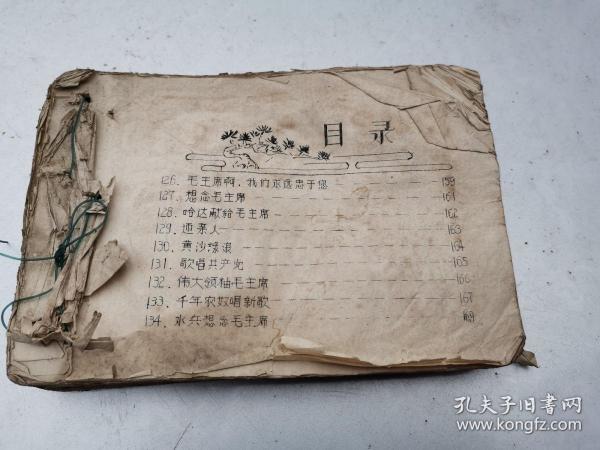 目录
126. 毛主席啊，我们永远忠于您 159
127. 想念毛主席 161
128. 哈达献给毛主席 162
129. 迎亲人 163
130. 黄沙绿浪 164
131. 歌唱共产党 165
132. 伟大领袖毛主席 166
133. 千年农奴唱新歌 167
134. 水兵想念毛主席 169
孔夫子旧书网
www.kongfz.com